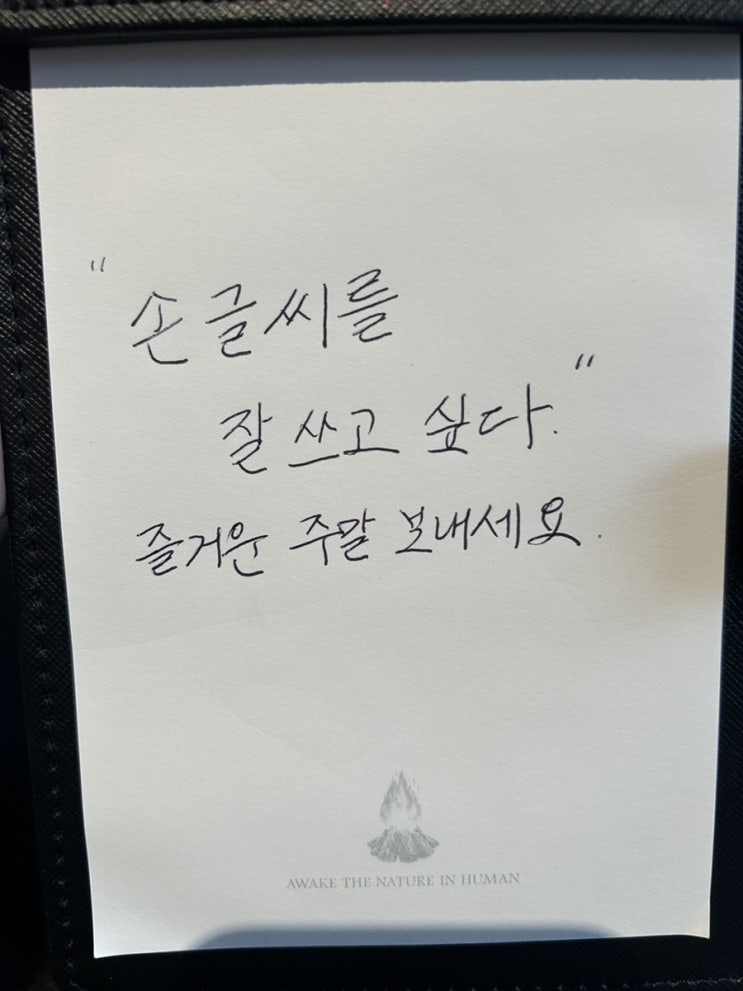 "손글씨를
잘 쓰고 싶다."
즐거운 주말 보내세요.
AWAKE THE NATURE IN HUMAN